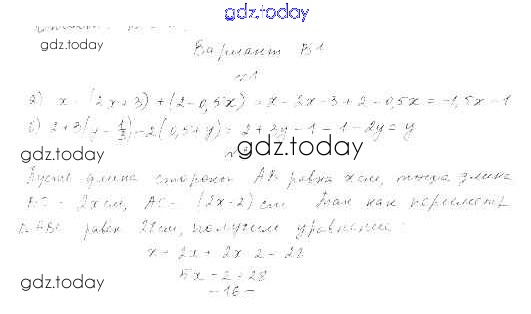 gdz.today
gdz.today gdz.today
Вариант В1
№1
а) x - (2x+3) + (2-0,5x) = x - 2x - 3 + 2 - 0,5x = -1,5x - 1
б) 2+3(y - 1/3) - 2(0,5+y) = 2+3y-1-1-2y = y
gdz.today №2 gdz.today
Пусть длина стороны АВ равна x см, тогда длина
ВС - 2x см, АС - (2x-2) см Так как периметр
АВС равен 28 см, получим уравнение:
x + 2x + 2x - 2 = 28
gdz.today 5x - 2 = 28 gdz.today
-16-